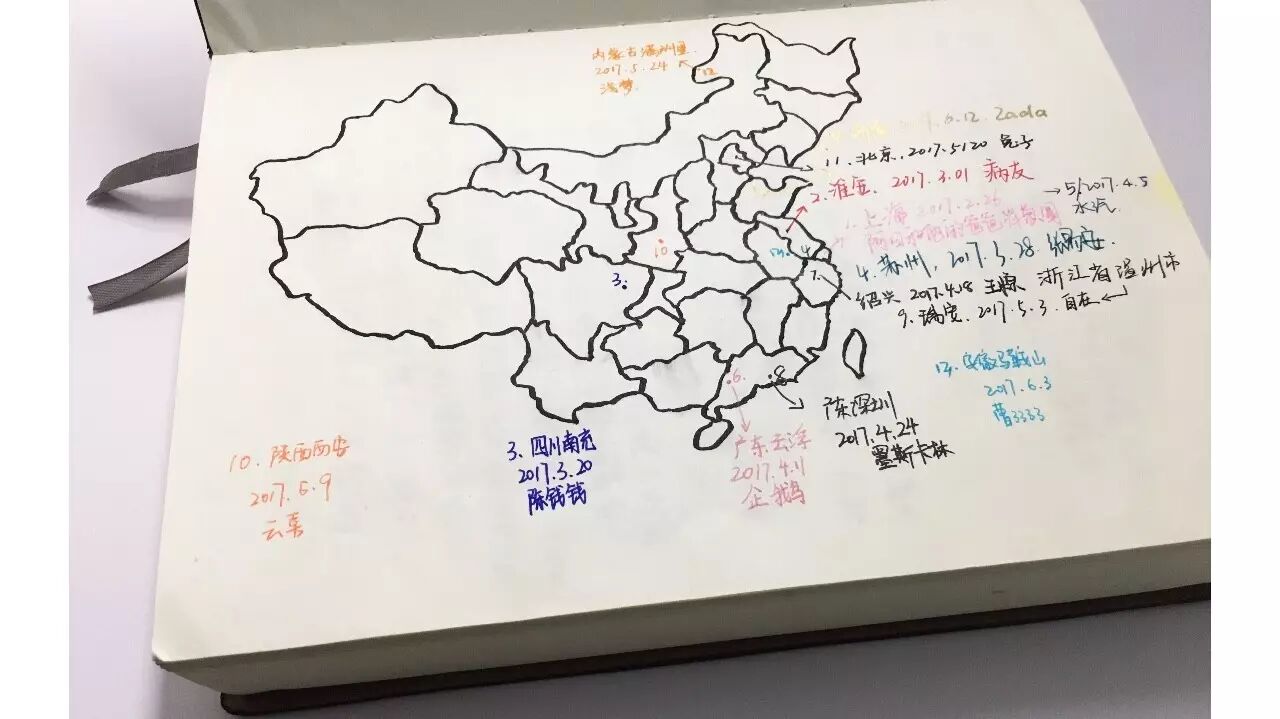 内蒙古满洲里
2017.5.24
浅梦
12
6.12. Zada
11. 北京. 2017.5.20 兔子
2. 淮安. 2017.3.01 病友
→ 5. 2017.4.5
水汽
1. 上海 2017.2.26
4. 苏州, 2017.3.28
绍兴 2017.4.18 王 浙江省温州市
9. 瑞安. 2017.5.3. 自在
10
3.
4
7.
.6.
.8
13. 安徽马鞍山
2017.6.3
曹3333
广东深圳
2017.4.24
墨斯卡林
广东云浮
2017.4.11
企鹅
3. 四川南充
2017.3.20
陈钱钱
10. 陕西西安
2017.6.9